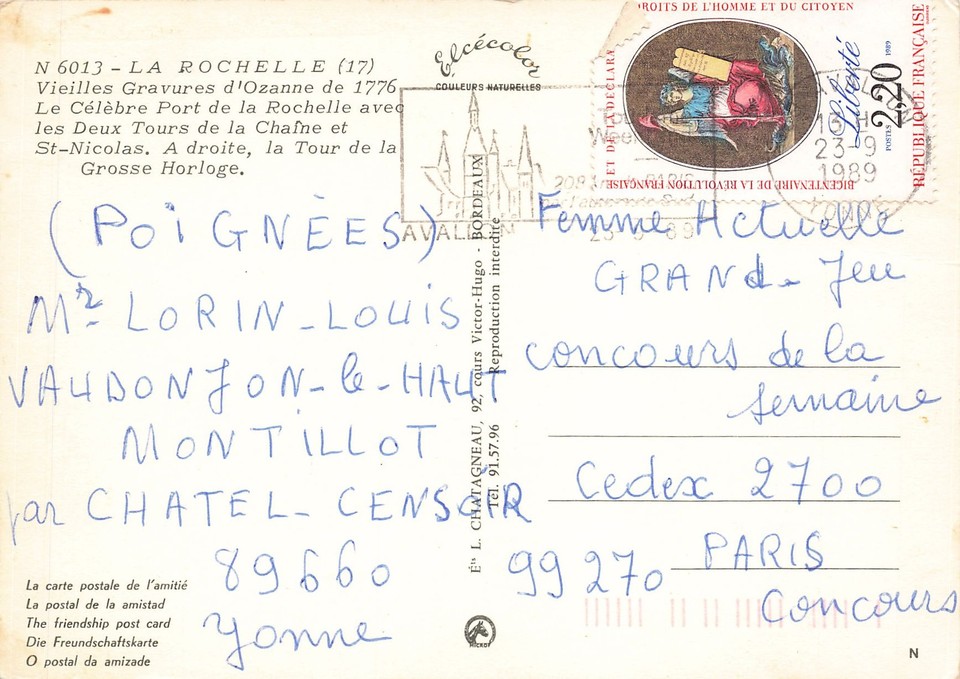 N 6013 - LA ROCHELLE (17)
Vieilles Gravures d'Ozanne de 1776
Le Célèbre Port de la Rochelle avec
les Deux Tours de la Chaîne et
St-Nicolas. A droite, la Tour de la
Grosse Horloge.
Elcécolor
COULEURS NATURELLES
(POÏGNÉES)
Mr LORIN-LOUIS
VAUDONJON-le-HAUT
MONTILLOT
par CHATEL-CENSOIR
89660
Yonne
La carte postale de l'amitié
La postal de la amistad
The friendship post card
Die Freundschaftskarte
O postal da amizade
Éts L. CHATAGNEAU, 92, cours Victor-Hugo - BORDEAUX
Tél. 91.57.96 Reproduction interdite
DROITS DE L'HOMME ET DU CITOYEN
ET DE LA DECLARA
BICENTENAIRE DE LA RÉVOLUTION FRANÇAISE
Liberté
2,20
POSTES 1989
RÉPUBLIQUE FRANÇAISE
AVALLON
23-9
1989
YONNE
Femme Actuelle
GRANd-Jeu
concours de la
semaine
Cedex 2700
99270 PARIS
Concours
N